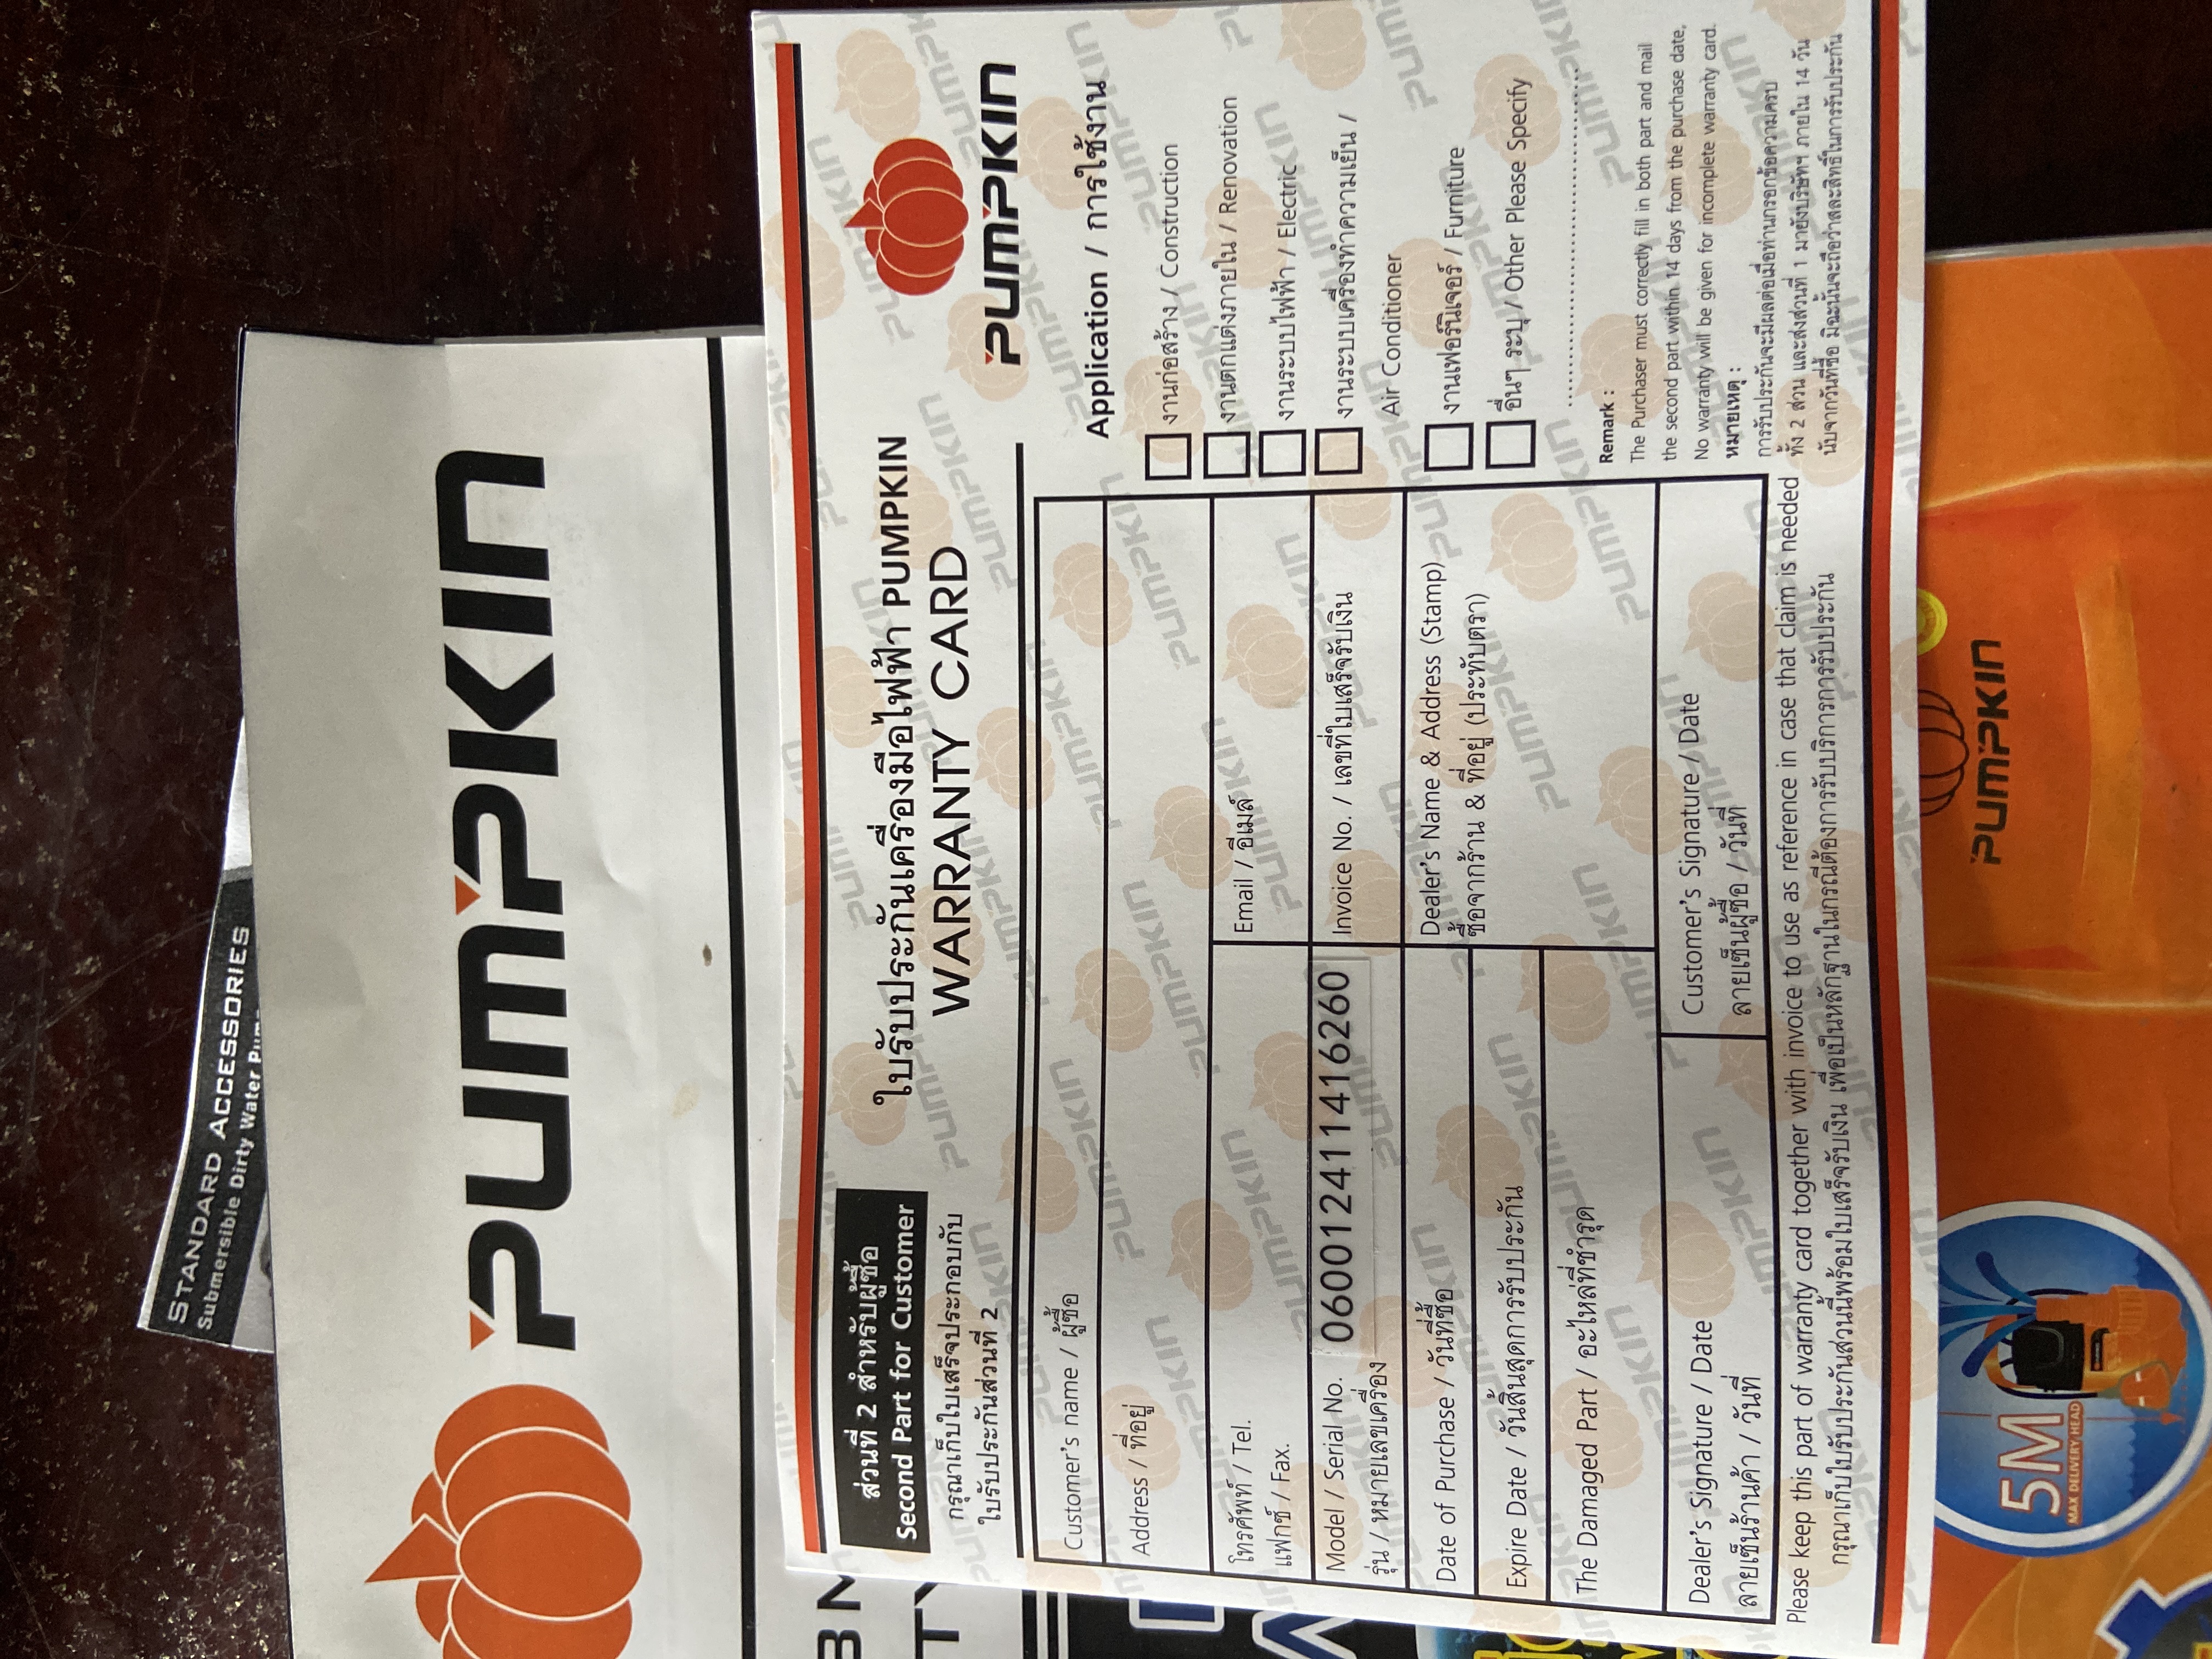 STANDARD ACCESSORIES
Submersible Dirty Water
PUMPKIN
ส่วนที่ 2 สำหรับผู้ซื้อ
Second Part for Customer
กรุณาเก็บใบเสร็จประกอบกับ
ใบรับประกันส่วนที่ 2
ใบรับประกันเครื่องมือไฟฟ้า PUMPKIN
WARRANTY CARD
PUMPKIN
Customer's name / ผู้ซื้อ
Address / ที่อยู่
โทรศัพท์ / Tel.
แฟกซ์ / Fax.
Email / อีเมล์
Model / Serial No. 0600124114​16260
รุ่น / หมายเลขเครื่อง
Invoice No. / เลขที่ใบเสร็จรับเงิน
Date of Purchase / วันที่ซื้อ
Expire Date / วันสิ้นสุดการรับประกัน
The Damaged Part / อะไหล่ที่ชำรุด
Dealer's Name & Address (Stamp)
ซื้อจากร้าน & ที่อยู่ (ประทับตรา)
Dealer's Signature / Date
ลายเซ็นร้านค้า / วันที่
Customer's Signature / Date
ลายเซ็นผู้ซื้อ / วันที่
Application / การใช้งาน
งานก่อสร้าง / Construction
งานตกแต่งภายใน / Renovation
งานระบบไฟฟ้า / Electric
งานระบบเครื่องทำความเย็น /
Air Conditioner
งานเฟอร์นิเจอร์ / Furniture
อื่นๆ ระบุ / Other Please Specify
Remark :
The Purchaser must correctly fill in both part and mail
the second part within 14 days from the purchase date,
No warranty will be given for incomplete warranty card.
หมายเหตุ :
การรับประกันจะมีผลต่อเมื่อท่านกรอกข้อความครบ
ทั้ง 2 ส่วน และส่งส่วนที่ 1 มายังบริษัทฯ ภายใน 14 วัน
นับจากวันที่ซื้อ มิฉะนั้นจะถือว่าสละสิทธิ์ในการรับประกัน
Please keep this part of warranty card together with invoice to use as reference in case that claim is needed
กรุณาเก็บใบรับประกันส่วนนี้พร้อมใบเสร็จรับเงิน เพื่อเป็นหลักฐานในกรณีต้องการรับบริการการรับประกัน
5M
MAX DELIVERY HEAD
PUMPKIN